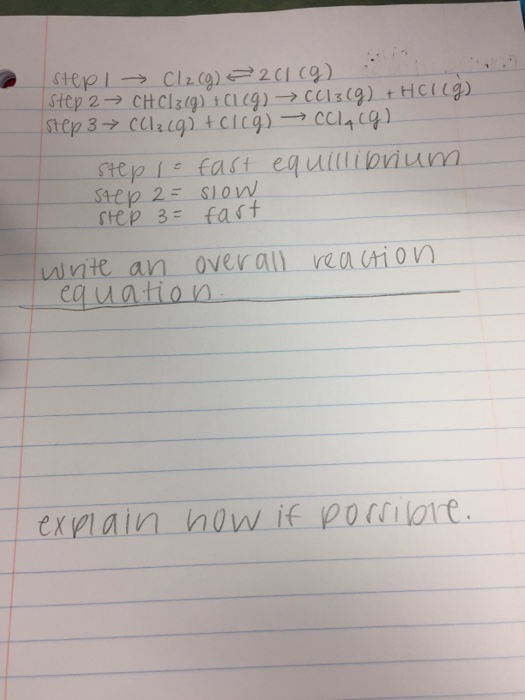 step 1 → Cl₂(g) ⇌ 2Cl(g)
step 2 → CHCl₃(g) + Cl(g) → CCl₃(g) + HCl(g)
step 3 → CCl₃(g) + Cl(g) → CCl₄(g)
step 1 = fast equillibrium
step 2 = slow
step 3 = fast
write an overall reaction
equation.
explain how if possible.